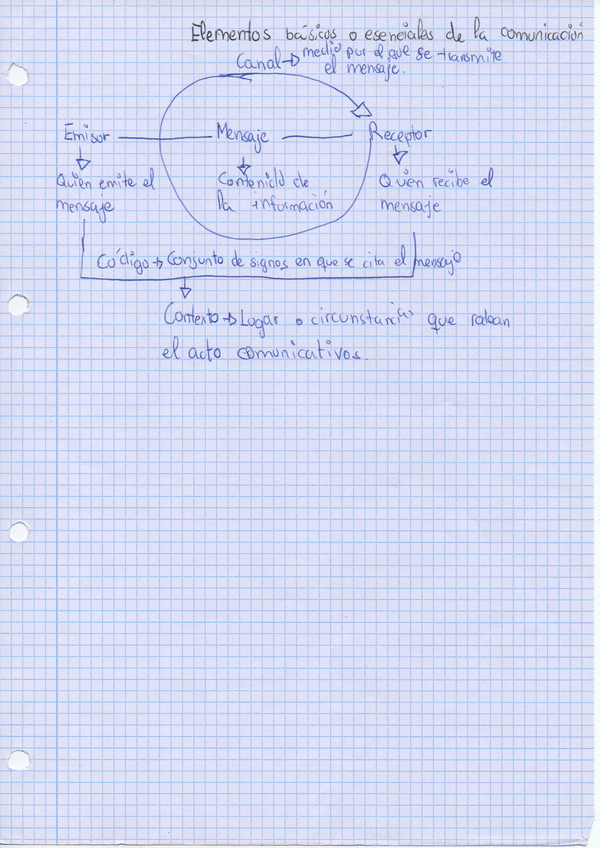 Elementos básicos o esenciales de la comunicación
Canal → medio por el que se transmite
el mensaje.
Emisor Mensaje Receptor
Quien emite el Contenido de Quien recibe el
mensaje la información mensaje
Código → Conjunto de signos en que se cita el mensaje
Contexto → Lugar o circunstancias que rodean
el acto comunicativos.